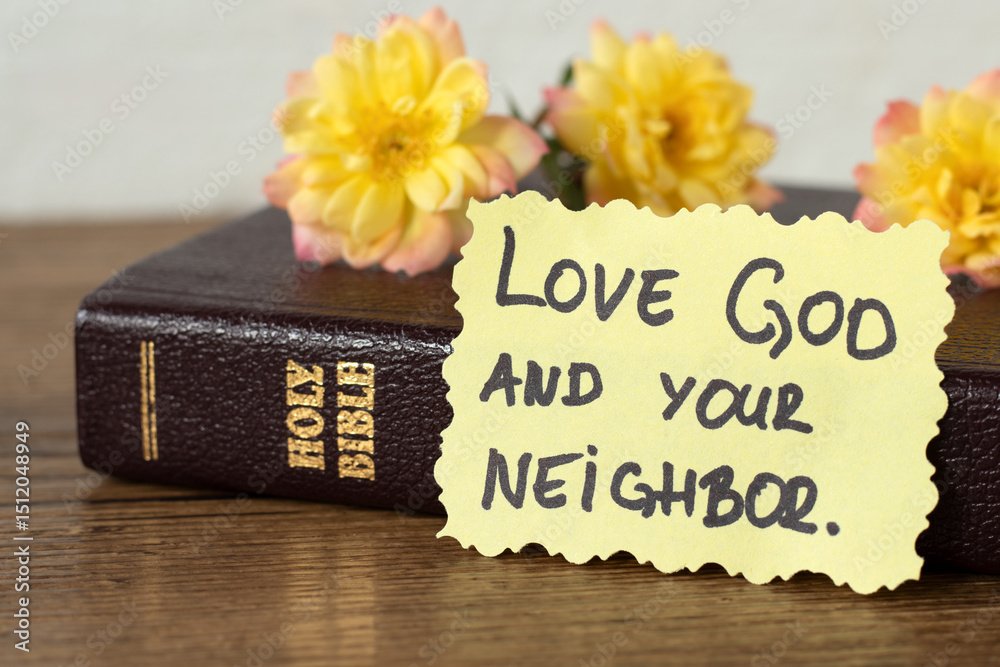 LOVE GOD
AND YOUR
NEiGHBOR.
HOLY
BIBLE
Adobe Stock | #1512048949